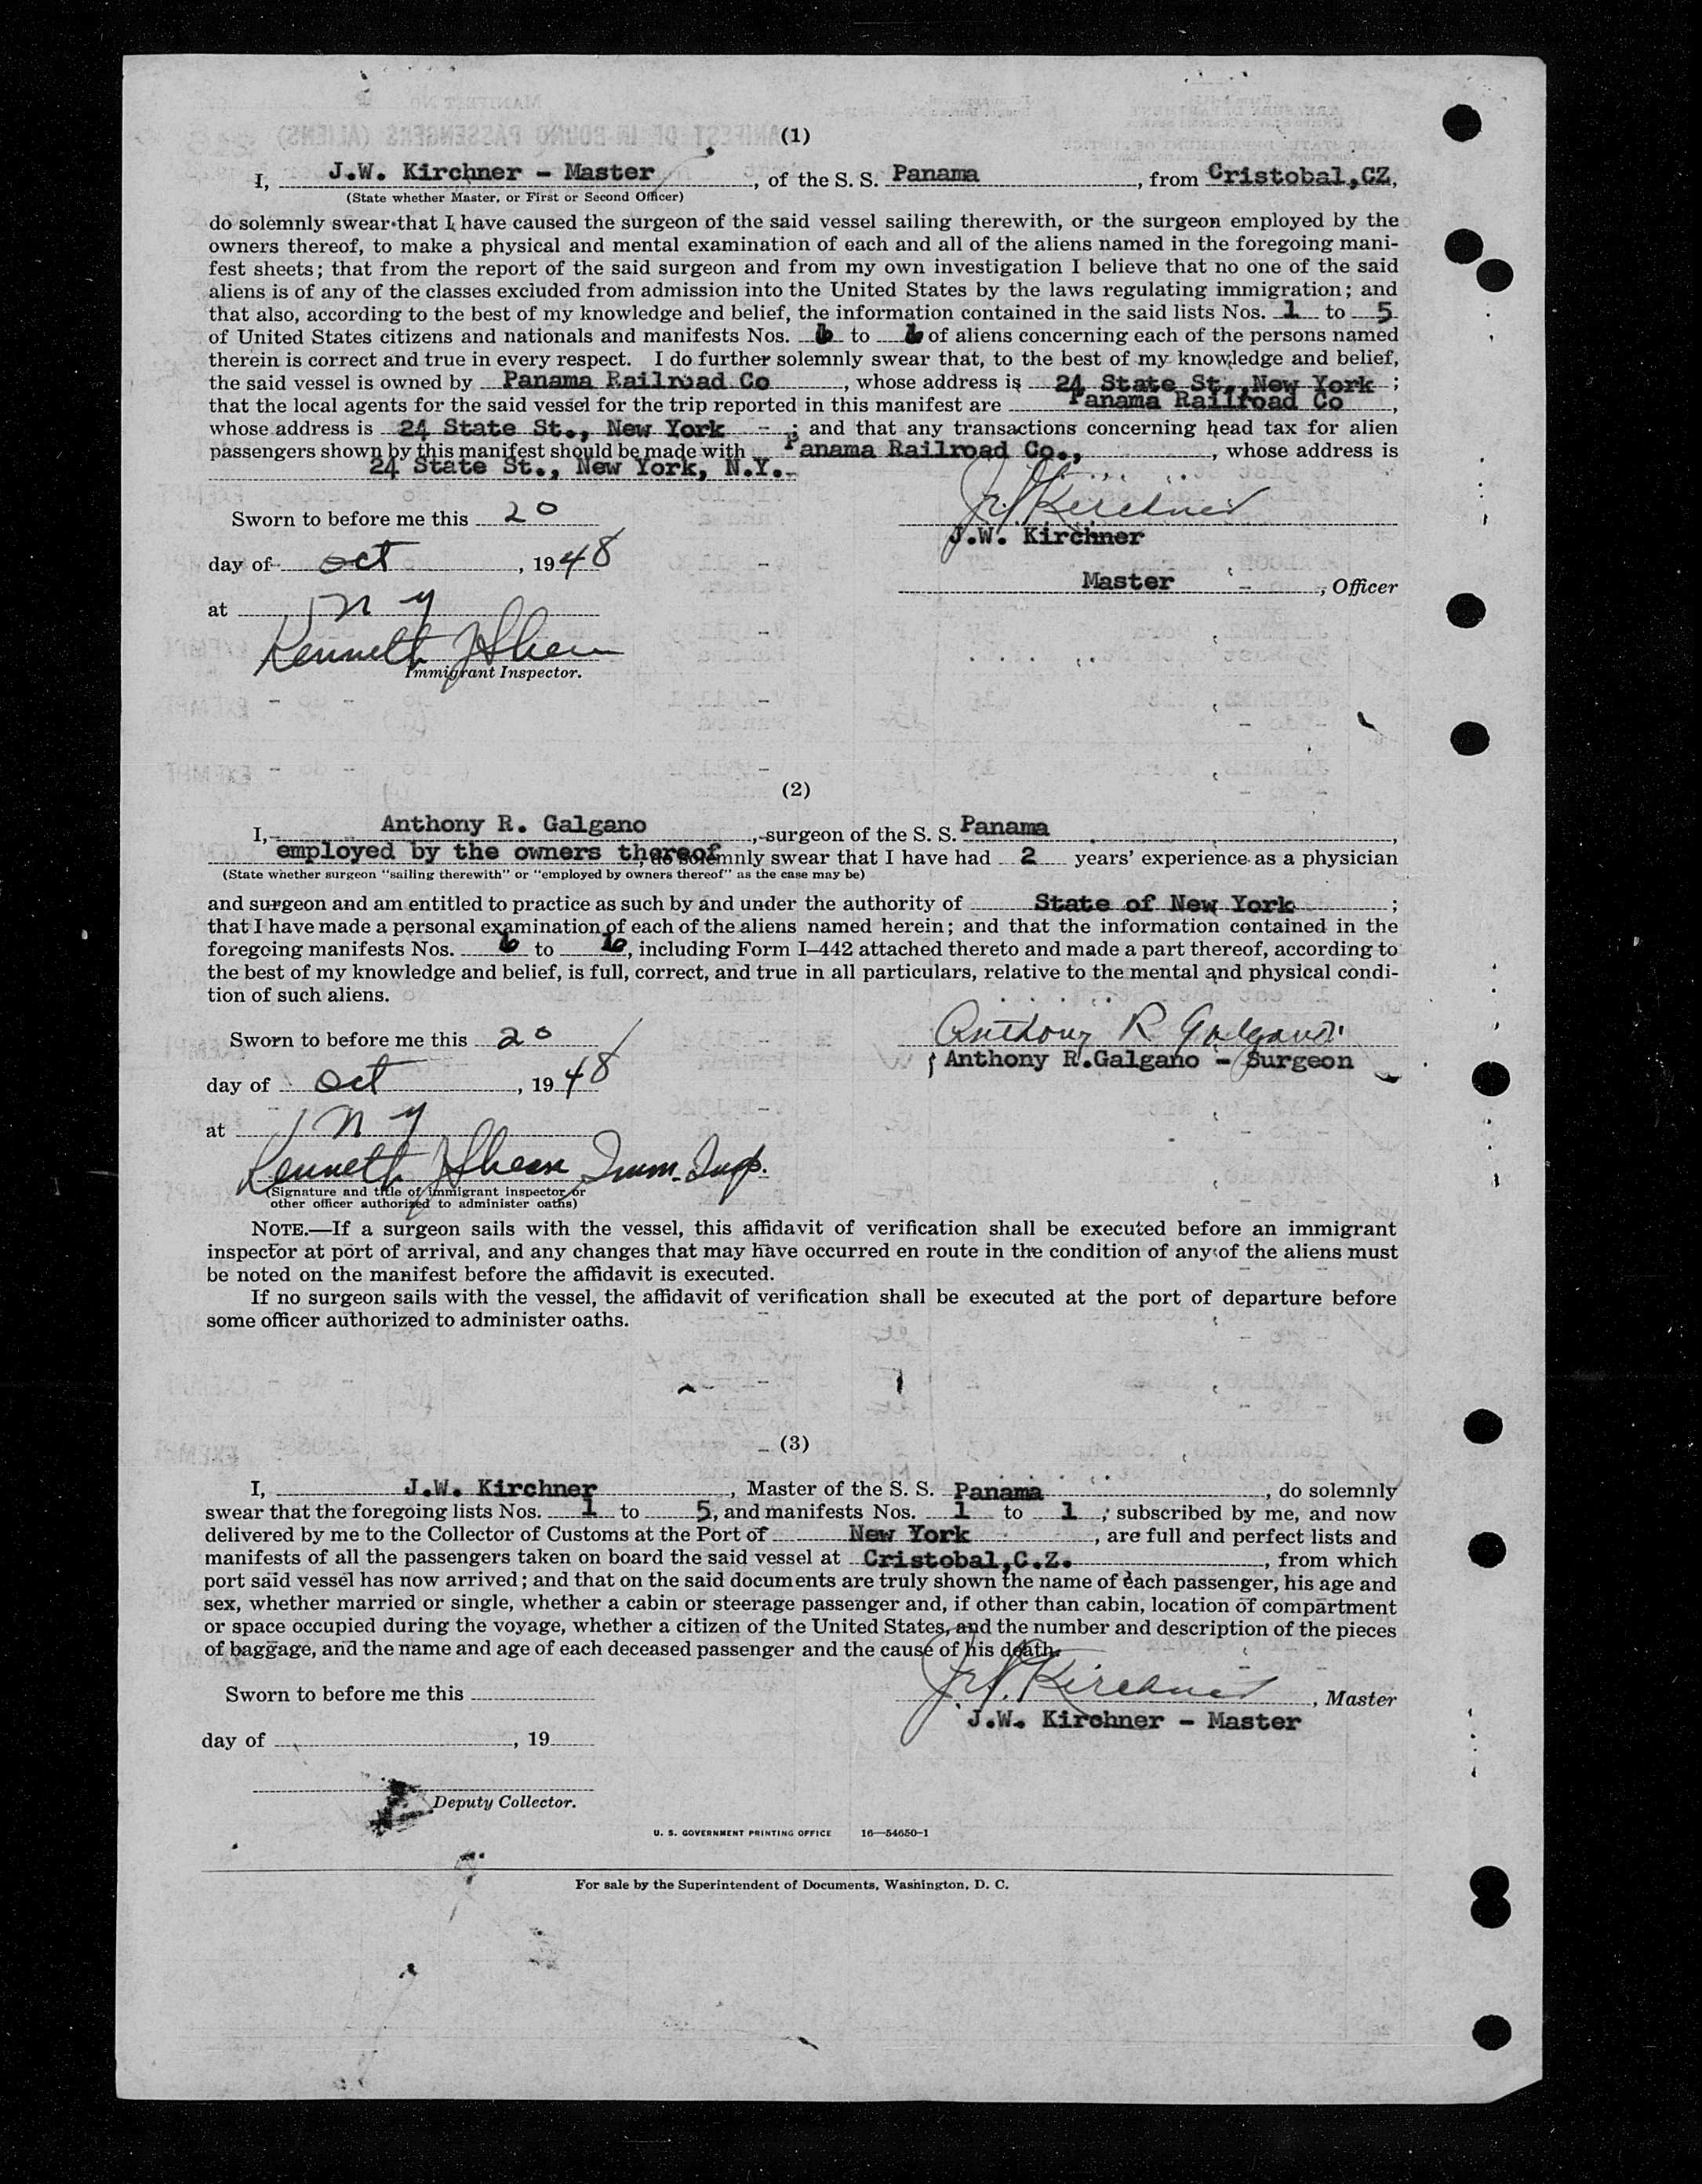 (1)
I, J.W. Kirchner - Master, of the S. S. Panama, from Cristobal,CZ,
(State whether Master, or First or Second Officer)
do solemnly swear that I have caused the surgeon of the said vessel sailing therewith, or the surgeon employed by the
owners thereof, to make a physical and mental examination of each and all of the aliens named in the foregoing mani-
fest sheets; that from the report of the said surgeon and from my own investigation I believe that no one of the said
aliens is of any of the classes excluded from admission into the United States by the laws regulating immigration; and
that also, according to the best of my knowledge and belief, the information contained in the said lists Nos. 1 to 5
of United States citizens and nationals and manifests Nos. 6 to 6 of aliens concerning each of the persons named
therein is correct and true in every respect. I do further solemnly swear that, to the best of my knowledge and belief,
the said vessel is owned by Panama Railroad Co, whose address is 24 State St., New York ;
that the local agents for the said vessel for the trip reported in this manifest are Panama Railroad Co,
whose address is 24 State St., New York - ; and that any transactions concerning head tax for alien
passengers shown by this manifest should be made with Panama Railroad Co., , whose address is
24 State St., New York, N.Y.-
Sworn to before me this 20
J.W. Kirchner
J.W. Kirchner
day of Oct, 1948
Master - , Officer
at N Y
Kenneth J Shea
Immigrant Inspector.
(2)
I, Anthony R. Galgano, surgeon of the S. S. Panama,
employed by the owners thereof, do solemnly swear that I have had 2 years' experience as a physician
(State whether surgeon "sailing therewith" or "employed by owners thereof" as the case may be)
and surgeon and am entitled to practice as such by and under the authority of State of New York ;
that I have made a personal examination of each of the aliens named herein; and that the information contained in the
foregoing manifests Nos. 6 to 6, including Form I–442 attached thereto and made a part thereof, according to
the best of my knowledge and belief, is full, correct, and true in all particulars, relative to the mental and physical condi-
tion of such aliens.
Sworn to before me this 20
Anthony R Galgano
Anthony R.Galgano - Surgeon
day of Oct, 1948
at N Y
Kenneth J Shea Imm. Insp.
(Signature and title of immigrant inspector or
other officer authorized to administer oaths)
NOTE.—If a surgeon sails with the vessel, this affidavit of verification shall be executed before an immigrant
inspector at port of arrival, and any changes that may have occurred en route in the condition of any of the aliens must
be noted on the manifest before the affidavit is executed.
If no surgeon sails with the vessel, the affidavit of verification shall be executed at the port of departure before
some officer authorized to administer oaths.
(3)
I, J.W. Kirchner, Master of the S. S. Panama, do solemnly
swear that the foregoing lists Nos. 1 to 5, and manifests Nos. 1 to 1, subscribed by me, and now
delivered by me to the Collector of Customs at the Port of New York, are full and perfect lists and
manifests of all the passengers taken on board the said vessel at Cristobal,C.Z., from which
port said vessel has now arrived; and that on the said documents are truly shown the name of each passenger, his age and
sex, whether married or single, whether a cabin or steerage passenger and, if other than cabin, location of compartment
or space occupied during the voyage, whether a citizen of the United States, and the number and description of the pieces
of baggage, and the name and age of each deceased passenger and the cause of his death.
Sworn to before me this
J.W. Kirchner, Master
J.W. Kirchner - Master
day of , 19
Deputy Collector.
U. S. GOVERNMENT PRINTING OFFICE 16—54650-1
For sale by the Superintendent of Documents, Washington, D. C.